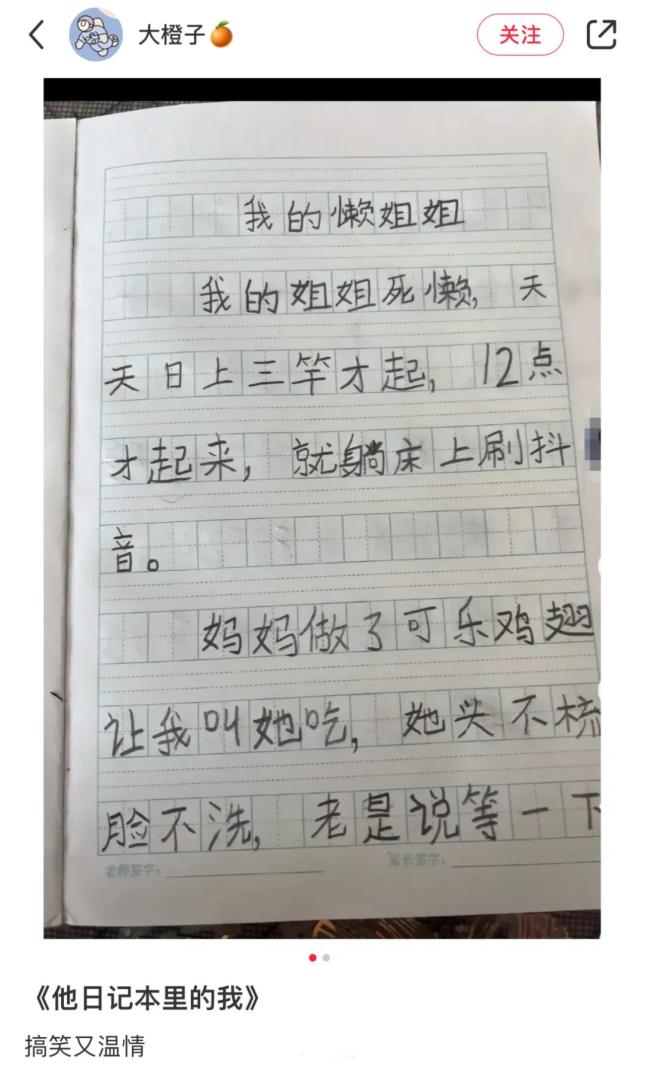 大橙子🍊
关注
我的懒姐姐
我的姐姐死懒，天
天日上三竿才起，12点
才起来，就躺床上刷抖
音。
妈妈做了可乐鸡翅
让我叫她吃，她头不梳
脸不洗，老是说等一下
老师签字：
家长签字：
《他日记本里的我》
搞笑又温情